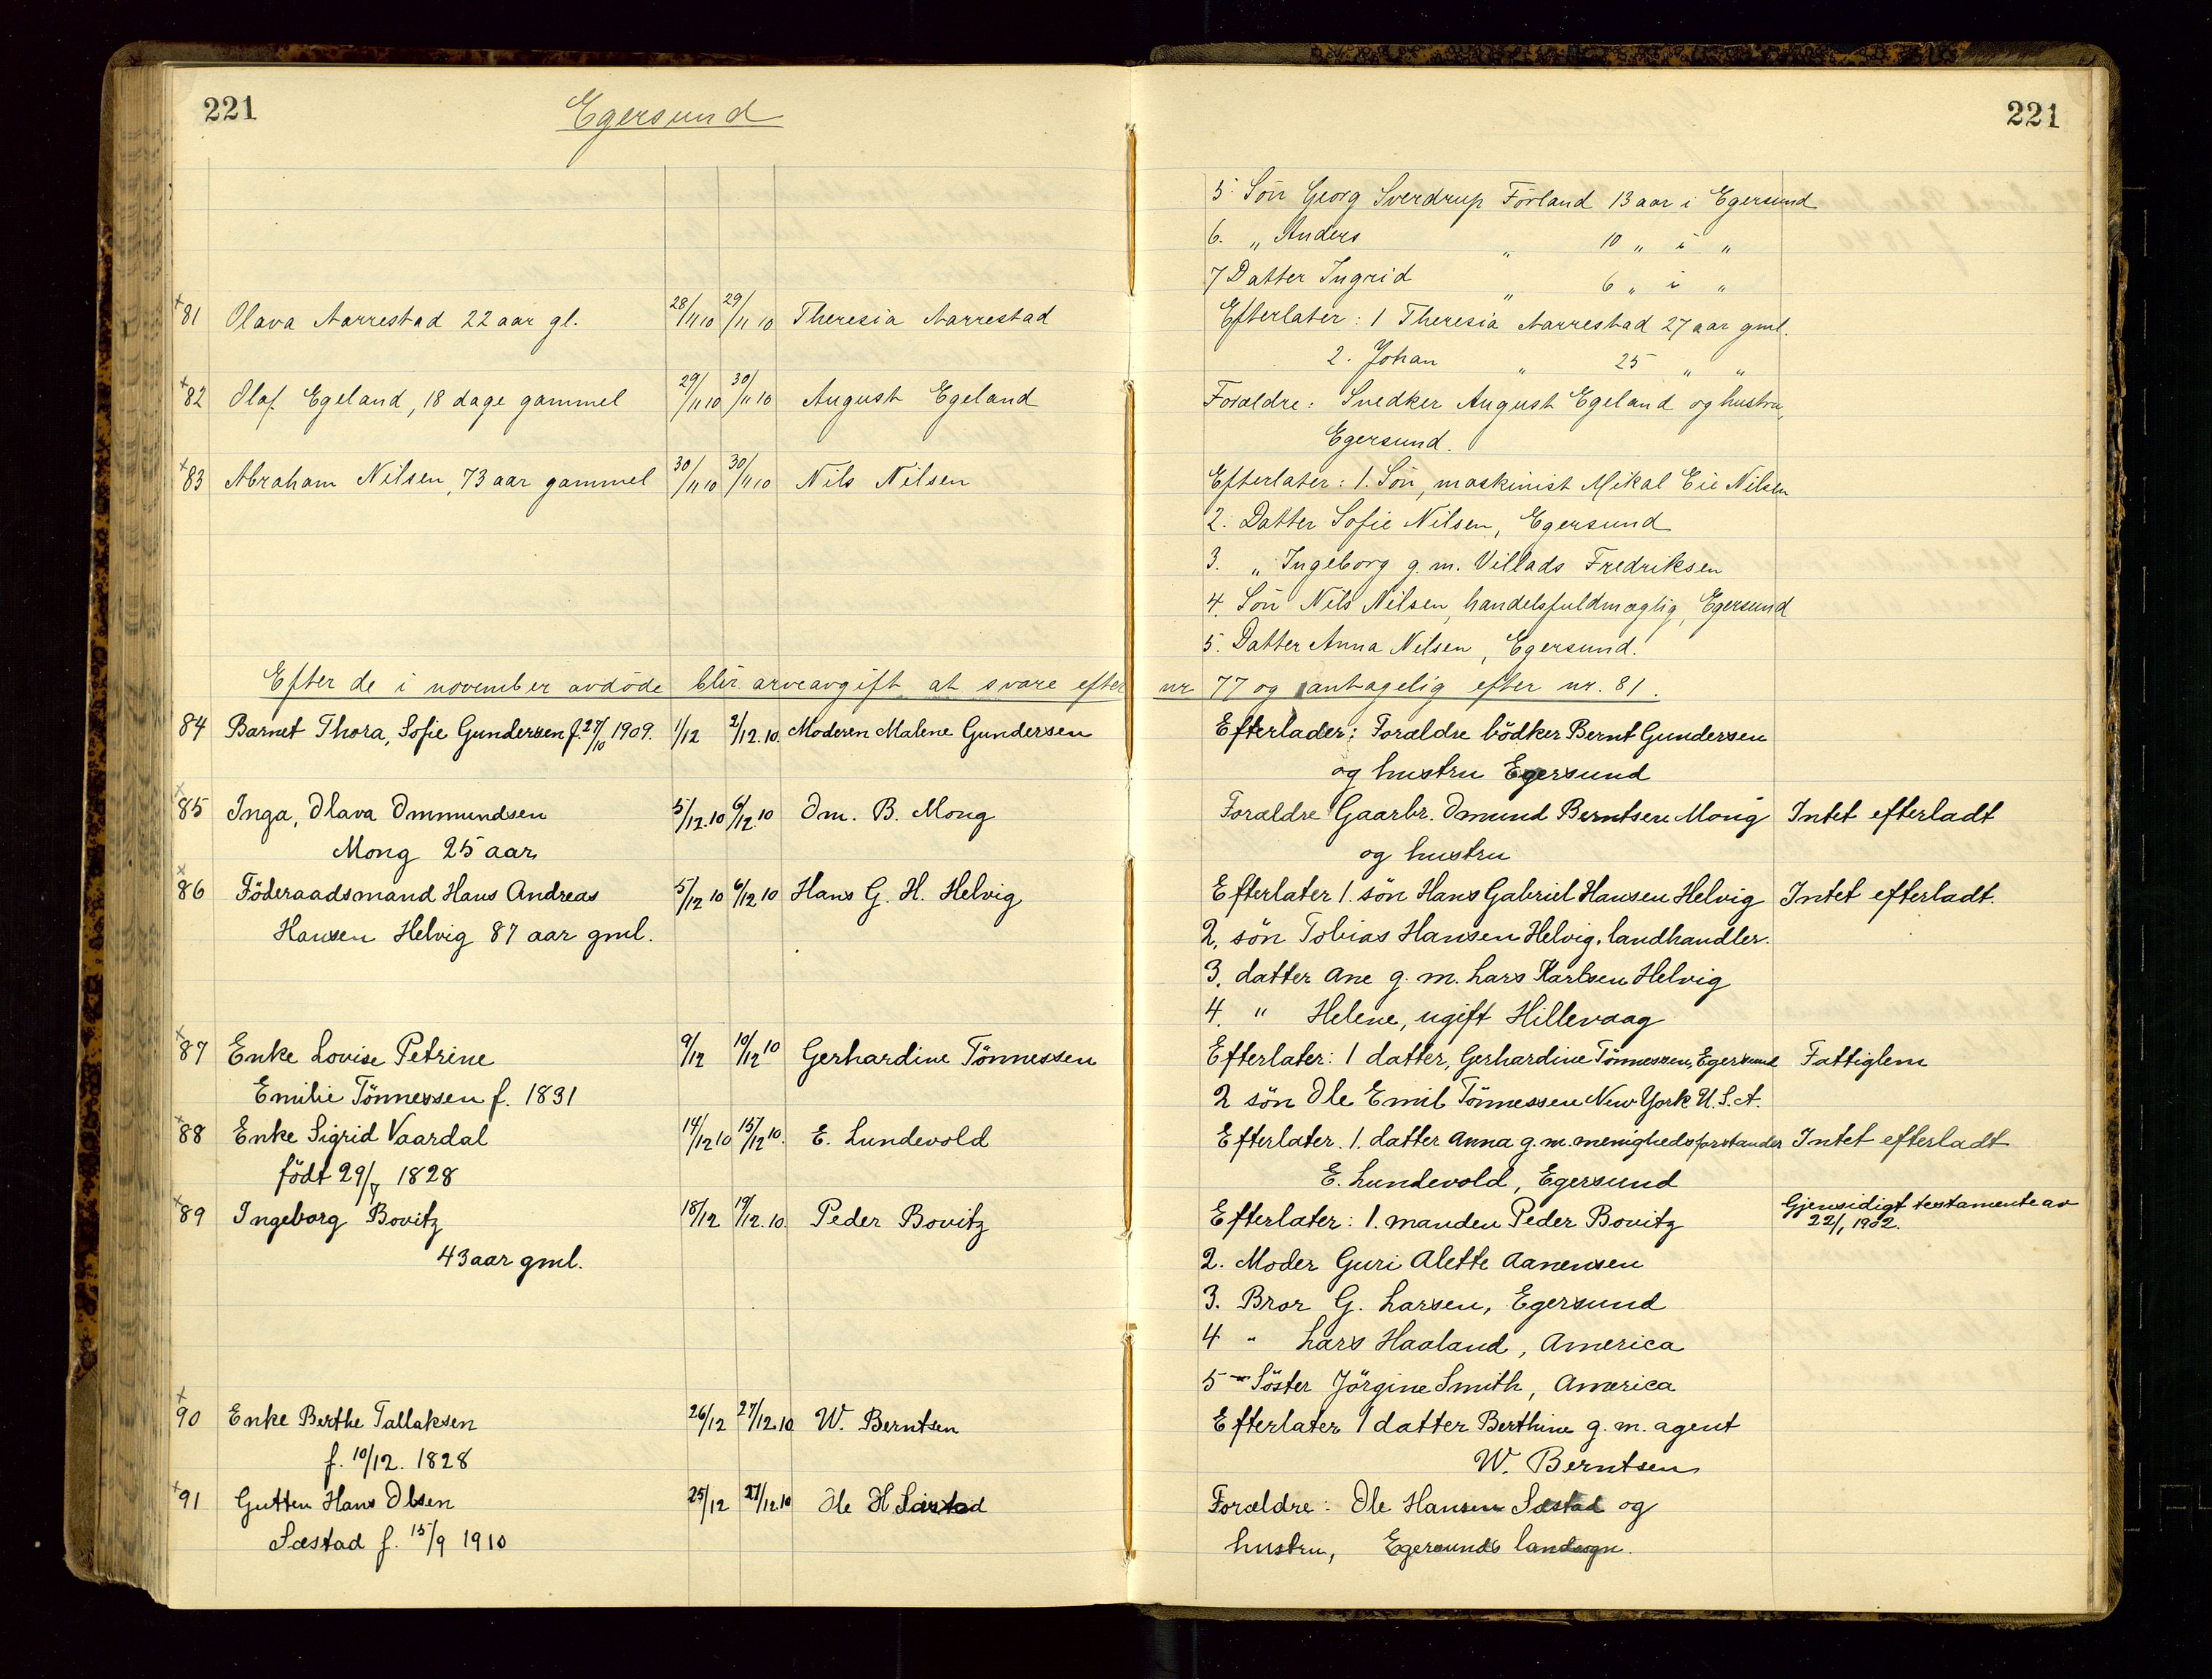 221
Egersund
221
5. Sön Georg Sverdrup Förland 13 aar i Egersund
6. „ Anders „ 10 „ i „
7 Datter Ingrid „ 6 „ i „
+81 Olava Aarrestad 22 aar gl. 28/11 10 29/11 10 Theresia Aarrestad Efterlater: 1 Theresia Aarrestad 27 aar gml.
2. Johan „ 25 „ „
+82 Olaf Egeland, 18 dage gammel 29/11 10 30/11 10 August Egeland Forældre: Snedker August Egeland og hustru,
Egersund.
+83 Abraham Nilsen, 73 aar gammel 30/11 10 30/11 10 Nils Nilsen Efterlater: 1. Sön, maskinist Mikal Eie Nilsen
2. Datter Sofie Nilsen, Egersund
3. „ Ingeborg g. m. Villads Fredriksen
4. Sön Nils Nilsen, handelsfuldmægtig, Egersund
5. Datter Anna Nilsen, Egersund.
Efter de i november avdöde blir arveavgift at svare efter nr 77 og antagelig efter nr. 81.
84 Barnet Thora, Sofie Gundersen f. 27/10 1909. 1/12 2/12.10. Moderen Malene Gundersen Efterlader: Forældre bödker Bernt Gundersen
og hustru Egersund
+85 Inga, Olava Ommundsen 5/12.10 6/12.10 Om. B. Mong Forældre Gaarbr. Omund Berntsen Mong Intet efterladt
Mong 25 aar, og hustru
+86 Föderaadsmand Hans Andreas 5/12 10 6/12 10 Hans G. H. Helvig Efterlater 1. sön Hans Gabriel Hansen Helvig Intet efterladt.
Hansen Helvig 87 aar gml. 2, sön Tobias Hansen Helvig, landhandler.
3, datter Ane g. m. Lars Karlsen Helvig
4. „ Helene, ugift Hillevaag
+87 Enke Lovise Petrine 9/12 10/12 10 Gerhardine Tönnessen Efterlater: 1 datter, Gerhardine Tönnessen, Egersund Fattiglem
Emilie Tönnessen f. 1831 2 sön Ole Emil Tönnessen New York U. S. A.
+88 Enke Sigrid Vaardal 14/12 10 15/12 10. E. Lundevold Efterlater. 1. datter Anna g. m. menighedsforstander Intet efterladt
födt 29/7 1828 E. Lundevold, Egersund
+89 Ingeborg Bovitz 18/12 19/12.10. Peder Bovitz Efterlater: 1. manden Peder Bovitz Gjensidigt testamente av
22/1 1902.
43 aar gml. 2. Moder Guri Alette Aanensen
3. Bror G. Larsen, Egersund
4 „ Lars Haaland, America
5 Söster Jörgine Smith, America
+90 Enke Berthe Tallaksen 26/12 27/12.10 W. Berntsen Efterlater 1 datter Berthine g. m. agent
f. 10/12. 1828 W. Berntsen
+91 Gutten Hans Olsen 25/12 27/12.10 Ole H Sæstad Forældre: Ole Hansen Sæstad og
Sæstad f. 15/9 1910 hustru, Egersunds landsogn.